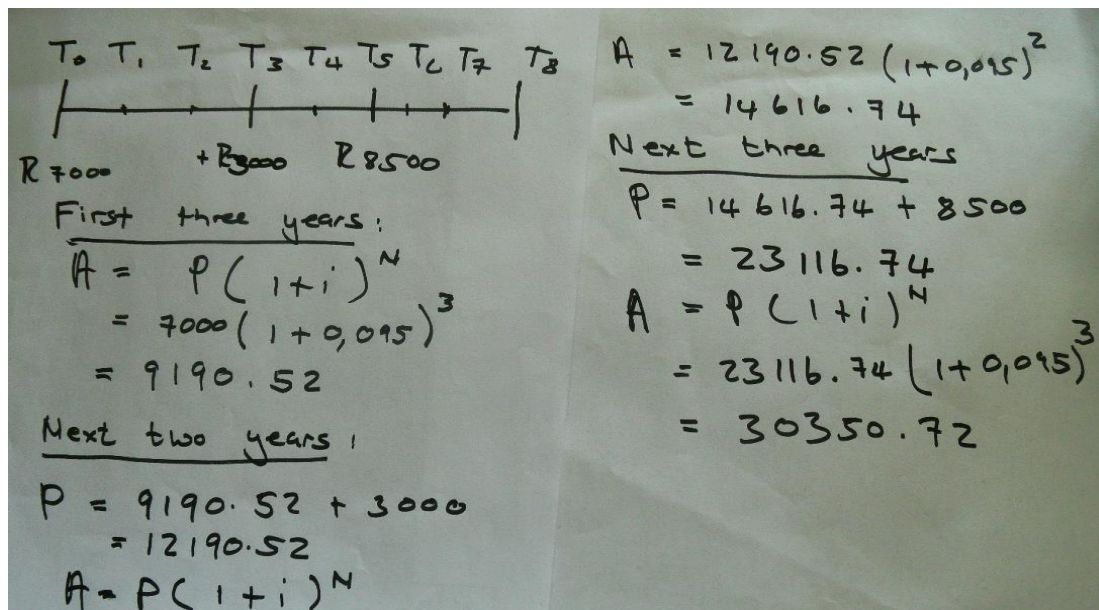 T₀ T₁ T₂ T₃ T₄ T₅ T₆ T₇ T₈
R 7000 + R3000 R 8500
First three years:
A = P(1+i)^N
= 7000(1+0,095)^3
= 9190.52
Next two years:
P = 9190.52 + 3000
= 12190.52
A = P(1+i)^N
A = 12190.52(1+0,095)^2
= 14616.74
Next three years
P = 14616.74 + 8500
= 23116.74
A = P(1+i)^N
= 23116.74(1+0,095)^3
= 30350.72